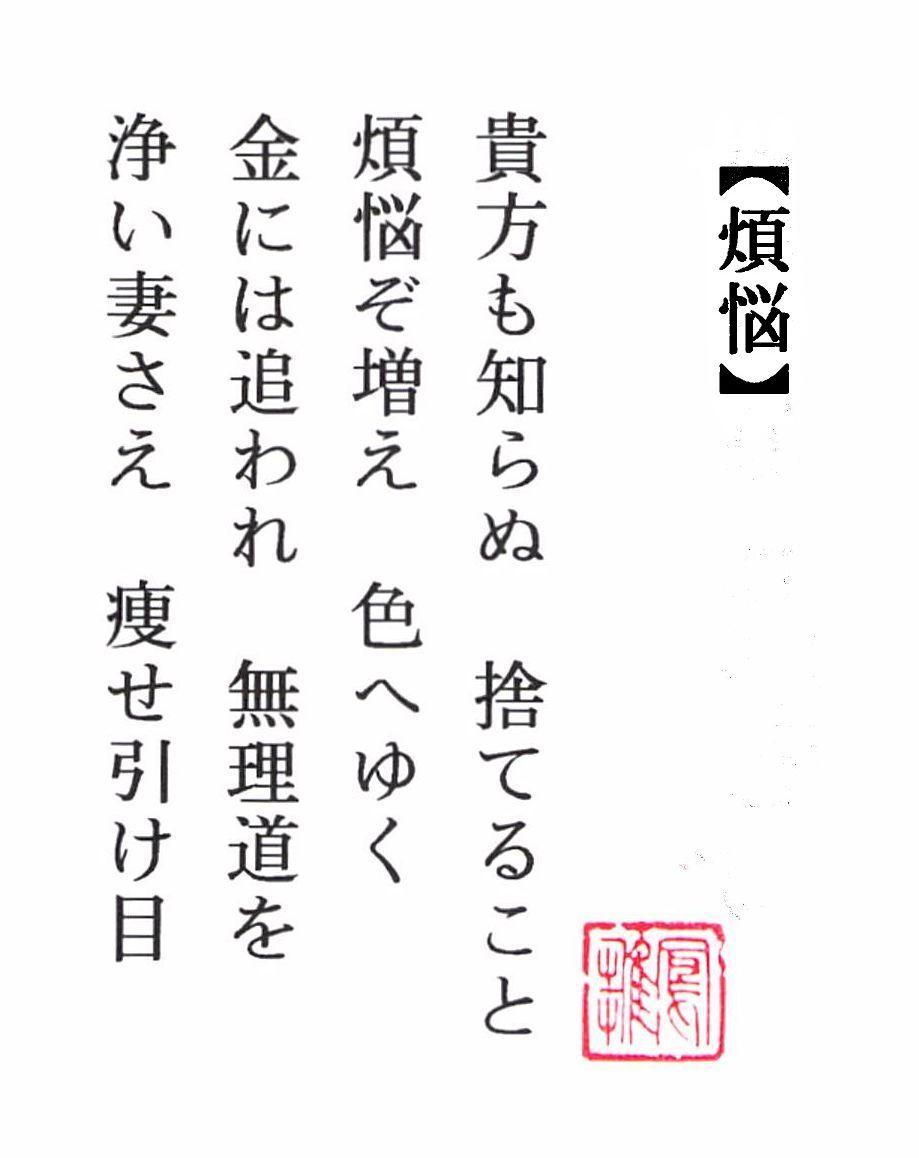 【煩悩】
貴方も知らぬ　捨てること
煩悩ぞ増え　色へゆく
金には追われ　無理道を
浄い妻さえ　痩せ引け目